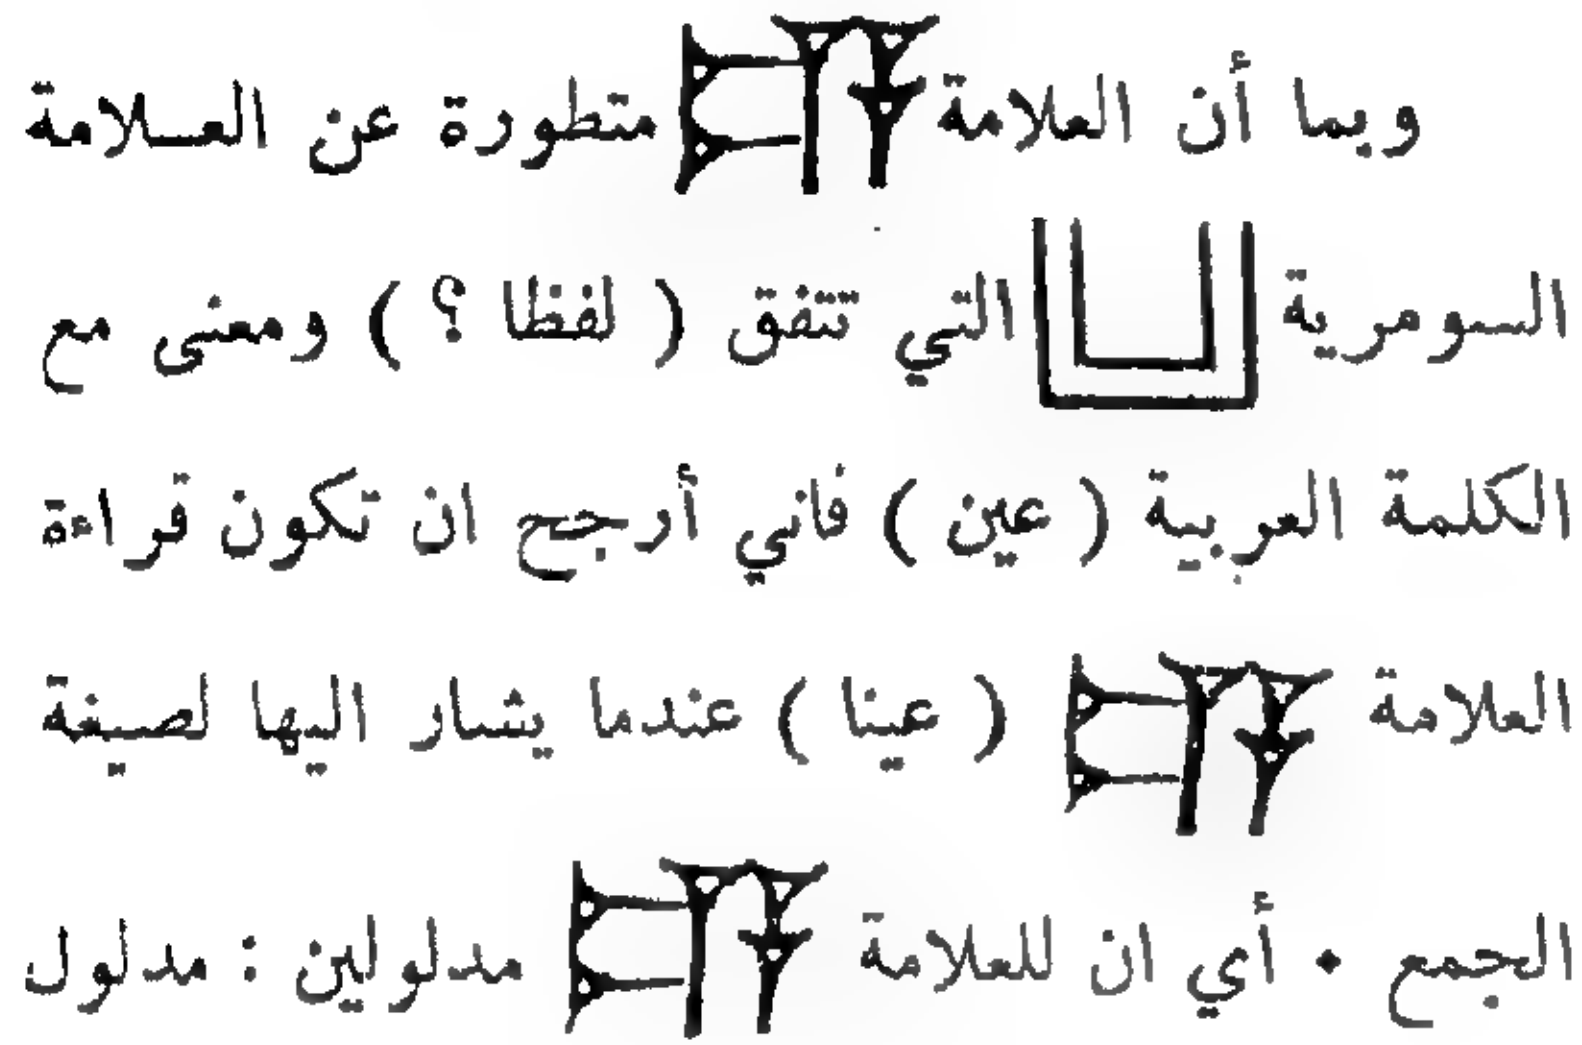 وبما أن العلامة 𒀀 متطورة عن العلامة
السومرية التي تتفق ( لفظا ؟ ) ومعنى مع
الكلمة العربية ( عين ) فاني أرجح ان تكون قراءة
العلامة ( عينا ) عندما يشار اليها لصيغة
الجمع . أي ان للعلامة مدلولين : مدلول